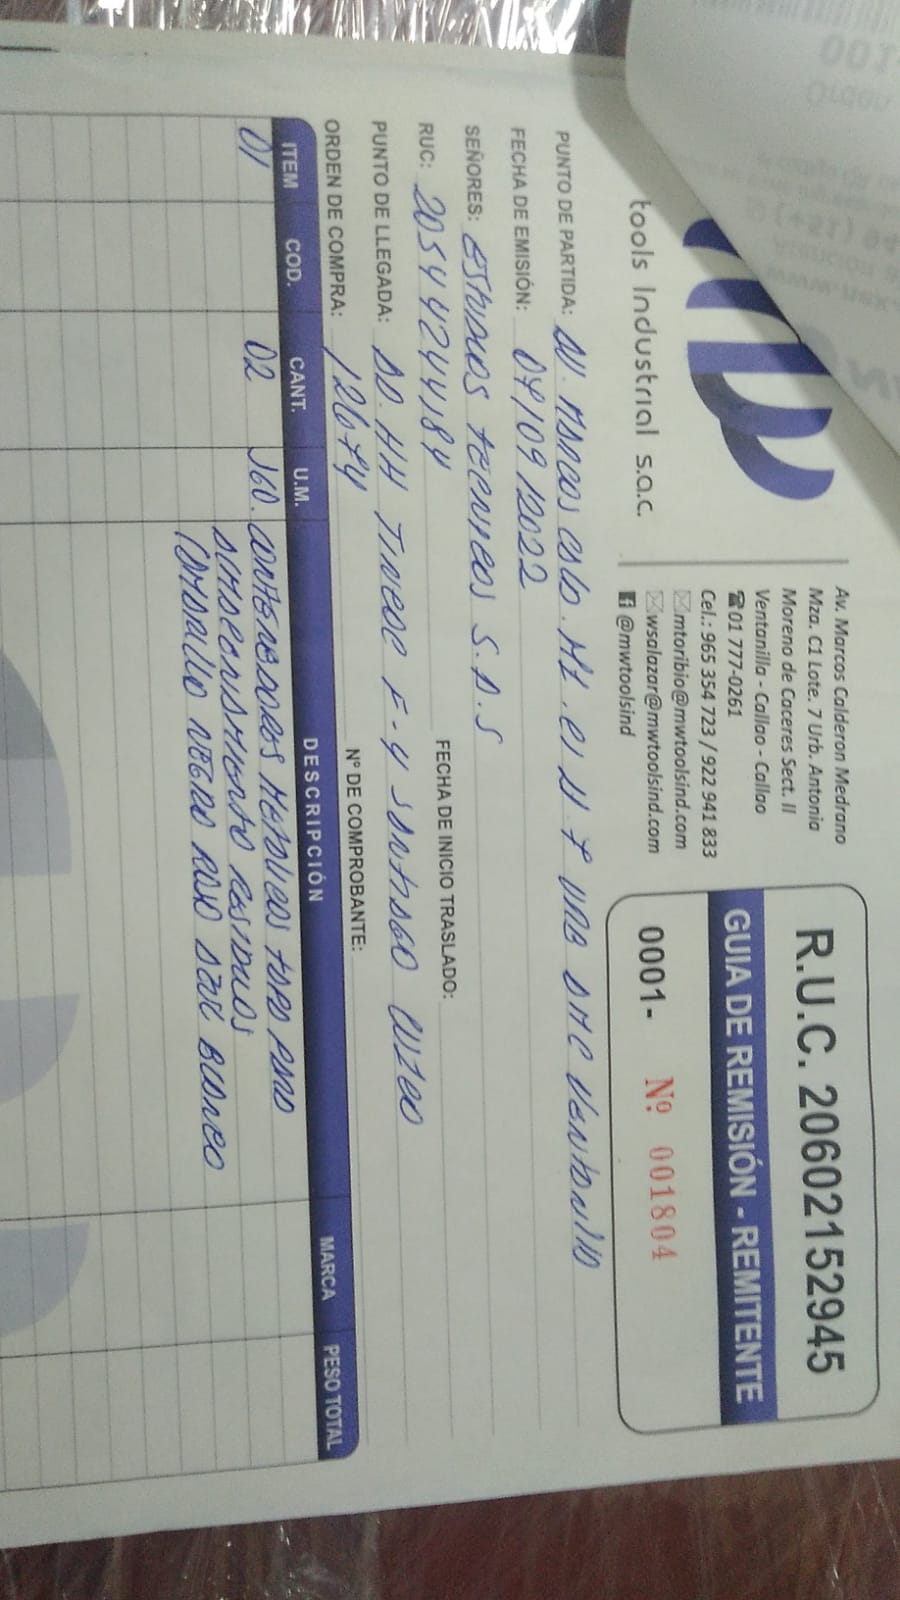 tools Industrial s.a.c.
Av. Marcos Calderon Medrano
Mza. C1 Lote. 7 Urb. Antonia
Moreno de Caceres Sect. II
Ventanilla - Callao - Callao
☎01 777-0261
Cel.: 965 354 723 / 922 941 833
mtoribio@mwtoolsind.com
wsalazar@mwtoolsind.com
@mwtoolsind
R.U.C. 20602152945
GUIA DE REMISIÓN - REMITENTE
0001- Nº 001804
PUNTO DE PARTIDA: AV. MARCOS CALD. MZ. C1 LT 7 URB AMC VENTANILLA
FECHA DE EMISIÓN: 07/09/2022
SEÑORES: TECNICOS S.A.S
FECHA DE INICIO TRASLADO:
RUC: 20544244184
PUNTO DE LLEGADA: AA.HH F-4 SANTIAGO CUZCO
ORDEN DE COMPRA: 12674
Nº DE COMPROBANTE:
ITEM COD. CANT. U.M. DESCRIPCIÓN MARCA PESO TOTAL
01 02 CONTENEDORES METALICOS PARA
ALMACENAMIENTO RESIDUOS
NEGRO ROJO AZUL BLANCO